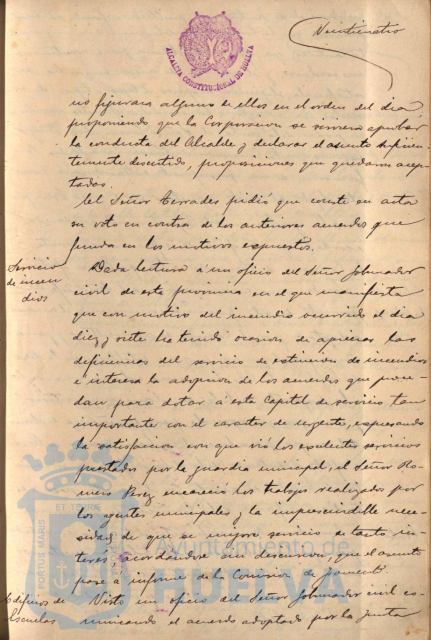 Veinticuatro
ALCALDIA CONSTITUCIONAL DE HUELVA
no figurara alguno de ellos en el orden del dia
proponiendo que la Corporacion se sirviera aprobar
la conducta del Alcalde y declarar el asunto suficien-
temente discutido, proposiciones que quedaron acep-
tadas.
El Señor Terrades pidió que conste en acta
su voto en contra de los anteriores acuerdos que
funda en los motivos expuestos.
Servicio
de incen
dios
Dada lectura á un oficio del Señor Gobernador
civil de esta provincia en el que manifiesta
que con motivo del incendio ocurrido el dia
diez y siete ha tenido ocasion de apreciar las
deficiencias del servicio de extincion de incendios
é interesa la adopcion de los acuerdos que proce-
dan para dotar á esta Capital de servicio tan
importante con el caracter de urgente, expresando
la satisfaccion con que vió los excelentes servicios
prestados por la guardia municipal; el Señor Ro-
mero Perez encareció los trabajos realizados por
los agentes municipales y la imprescindible nece-
sidad de que se mejore servicio de tanto in-
terés, acordándose sin discusion, que el asunto
pase á informe de la Comision de Fomento.
Edificios de
Escuelas
Visto un oficio del Señor Gobernador civil co-
municando el acuerdo adoptado por la Junta
PORTUS MARIS ET TERRE
Ayuntamiento de
HUELVA